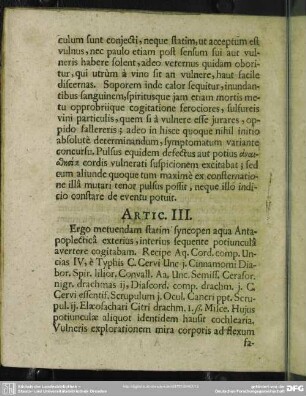 culum sunt conjecti, neque statim, ut acceptum est
vulnus, nec paulo etiam post sensum sui aut vul-
neris habere solent, adeo veternus quidam obori-
tur, qui utrùm à vino sit an vulnere, haut facile
discernas. Soporem inde calor sequitur, inundan-
tibus sanguinem, spiritusque jam etiam mortis me-
tu opprobriique cogitatione ferociores, sulfureis
vini particulis, quem si à vulnere esse jurares, op-
pido fallereris; adeo in hisce quoque nihil initio
absolutè determinandum, symptomatum variante
concursu. Pulsus equidem defectus aut potius
cordis vulnerati suspicionem excitabat; sed
eum aliunde quoque tum maximè ex consternatio-
ne illâ mutari tenor pulsus possit, neque illo indi-
cio constare de eventu potuit.
ARTIC. III.
Ergo metuendam statim syncopen aqua Anta-
poplecticâ exterius, interius sequente potiunculâ
avertere cogitabam. Recipe Aq. Cord. comp. Un-
cias IV, è Typhis C. Cervi Unc j. Cinnamom: Dia-
bor. Spir. lilior. Convall. Aa. Unc. Semiss. Cerasor.
nigr. drachmas ij, Diascord. comp. drachm. j. C.
Cervi essentif. Scrupulum j. Ocul. Cancri ppt. Scru-
pul. ij. Elæosachari Citri drachm. 1. ß. Misce. Hujus
potiunculæ aliquot identidem hausit cochlearia.
Vulneris explorationem mira corporis ad flexum
fa-